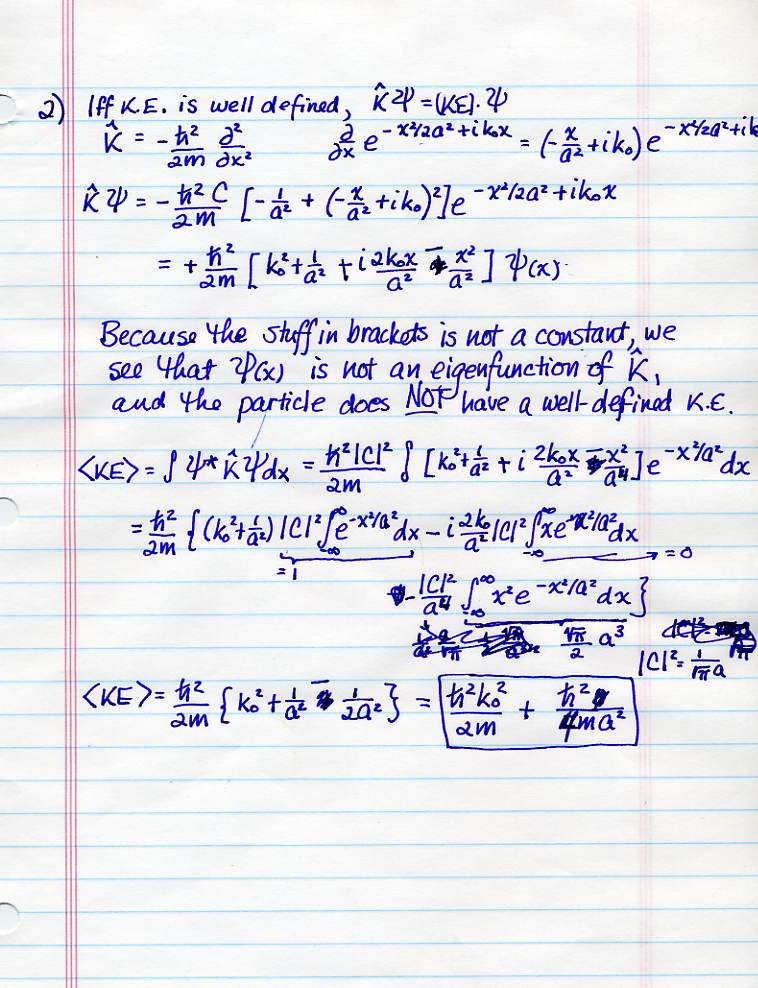 2) Iff K.E. is well defined, K̂Ψ = (KE)·Ψ
K̂ = -ħ²/2m ∂²/∂x²   ∂/∂x e^(-x²/2a²+ik₀x) = (-x/a²+ik₀) e^(-x²/2a²+ik
K̂Ψ = -ħ²C/2m [-1/a² + (-x/a²+ik₀)²] e^(-x²/2a²+ik₀x)
= +ħ²/2m [k₀²+1/a² + i 2k₀x/a² - x²/a²] Ψ(x)
Because the stuff in brackets is not a constant, we
see that Ψ(x) is not an eigenfunction of K̂,
and the particle does NOT have a well-defined K.E.
<KE> = ∫ Ψ* K̂Ψdx = ħ²|C|²/2m ∫ [k₀²+1/a² + i 2k₀x/a² - x²/a⁴] e^(-x²/a²) dx
= ħ²/2m { (k₀²+1/a²) |C|² ∫_-∞^∞ e^(-x²/a²) dx - i 2k₀/a² |C|² ∫_-∞^∞ xe^(-x²/a²) dx
= 1   = 0
- |C|²/a⁴ ∫_-∞^∞ x² e^(-x²/a²) dx }
√π/2 a³   |C|² = 1/√π a
<KE> = ħ²/2m { k₀² + 1/a² - 1/2a² } = ħ²k₀²/2m + ħ²/4ma²